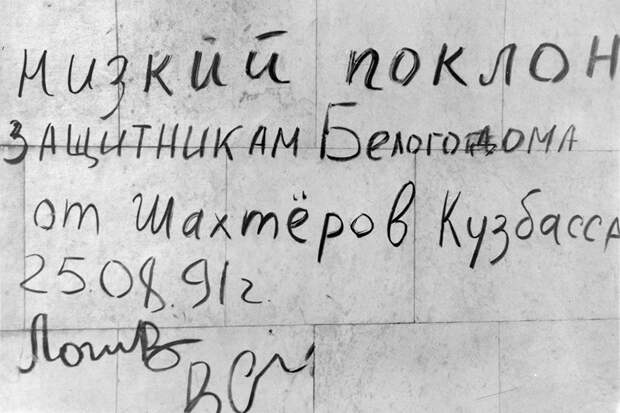 Низкий поклон
защитникам Белого дома
от шахтёров Кузбасса
25.08.91г.